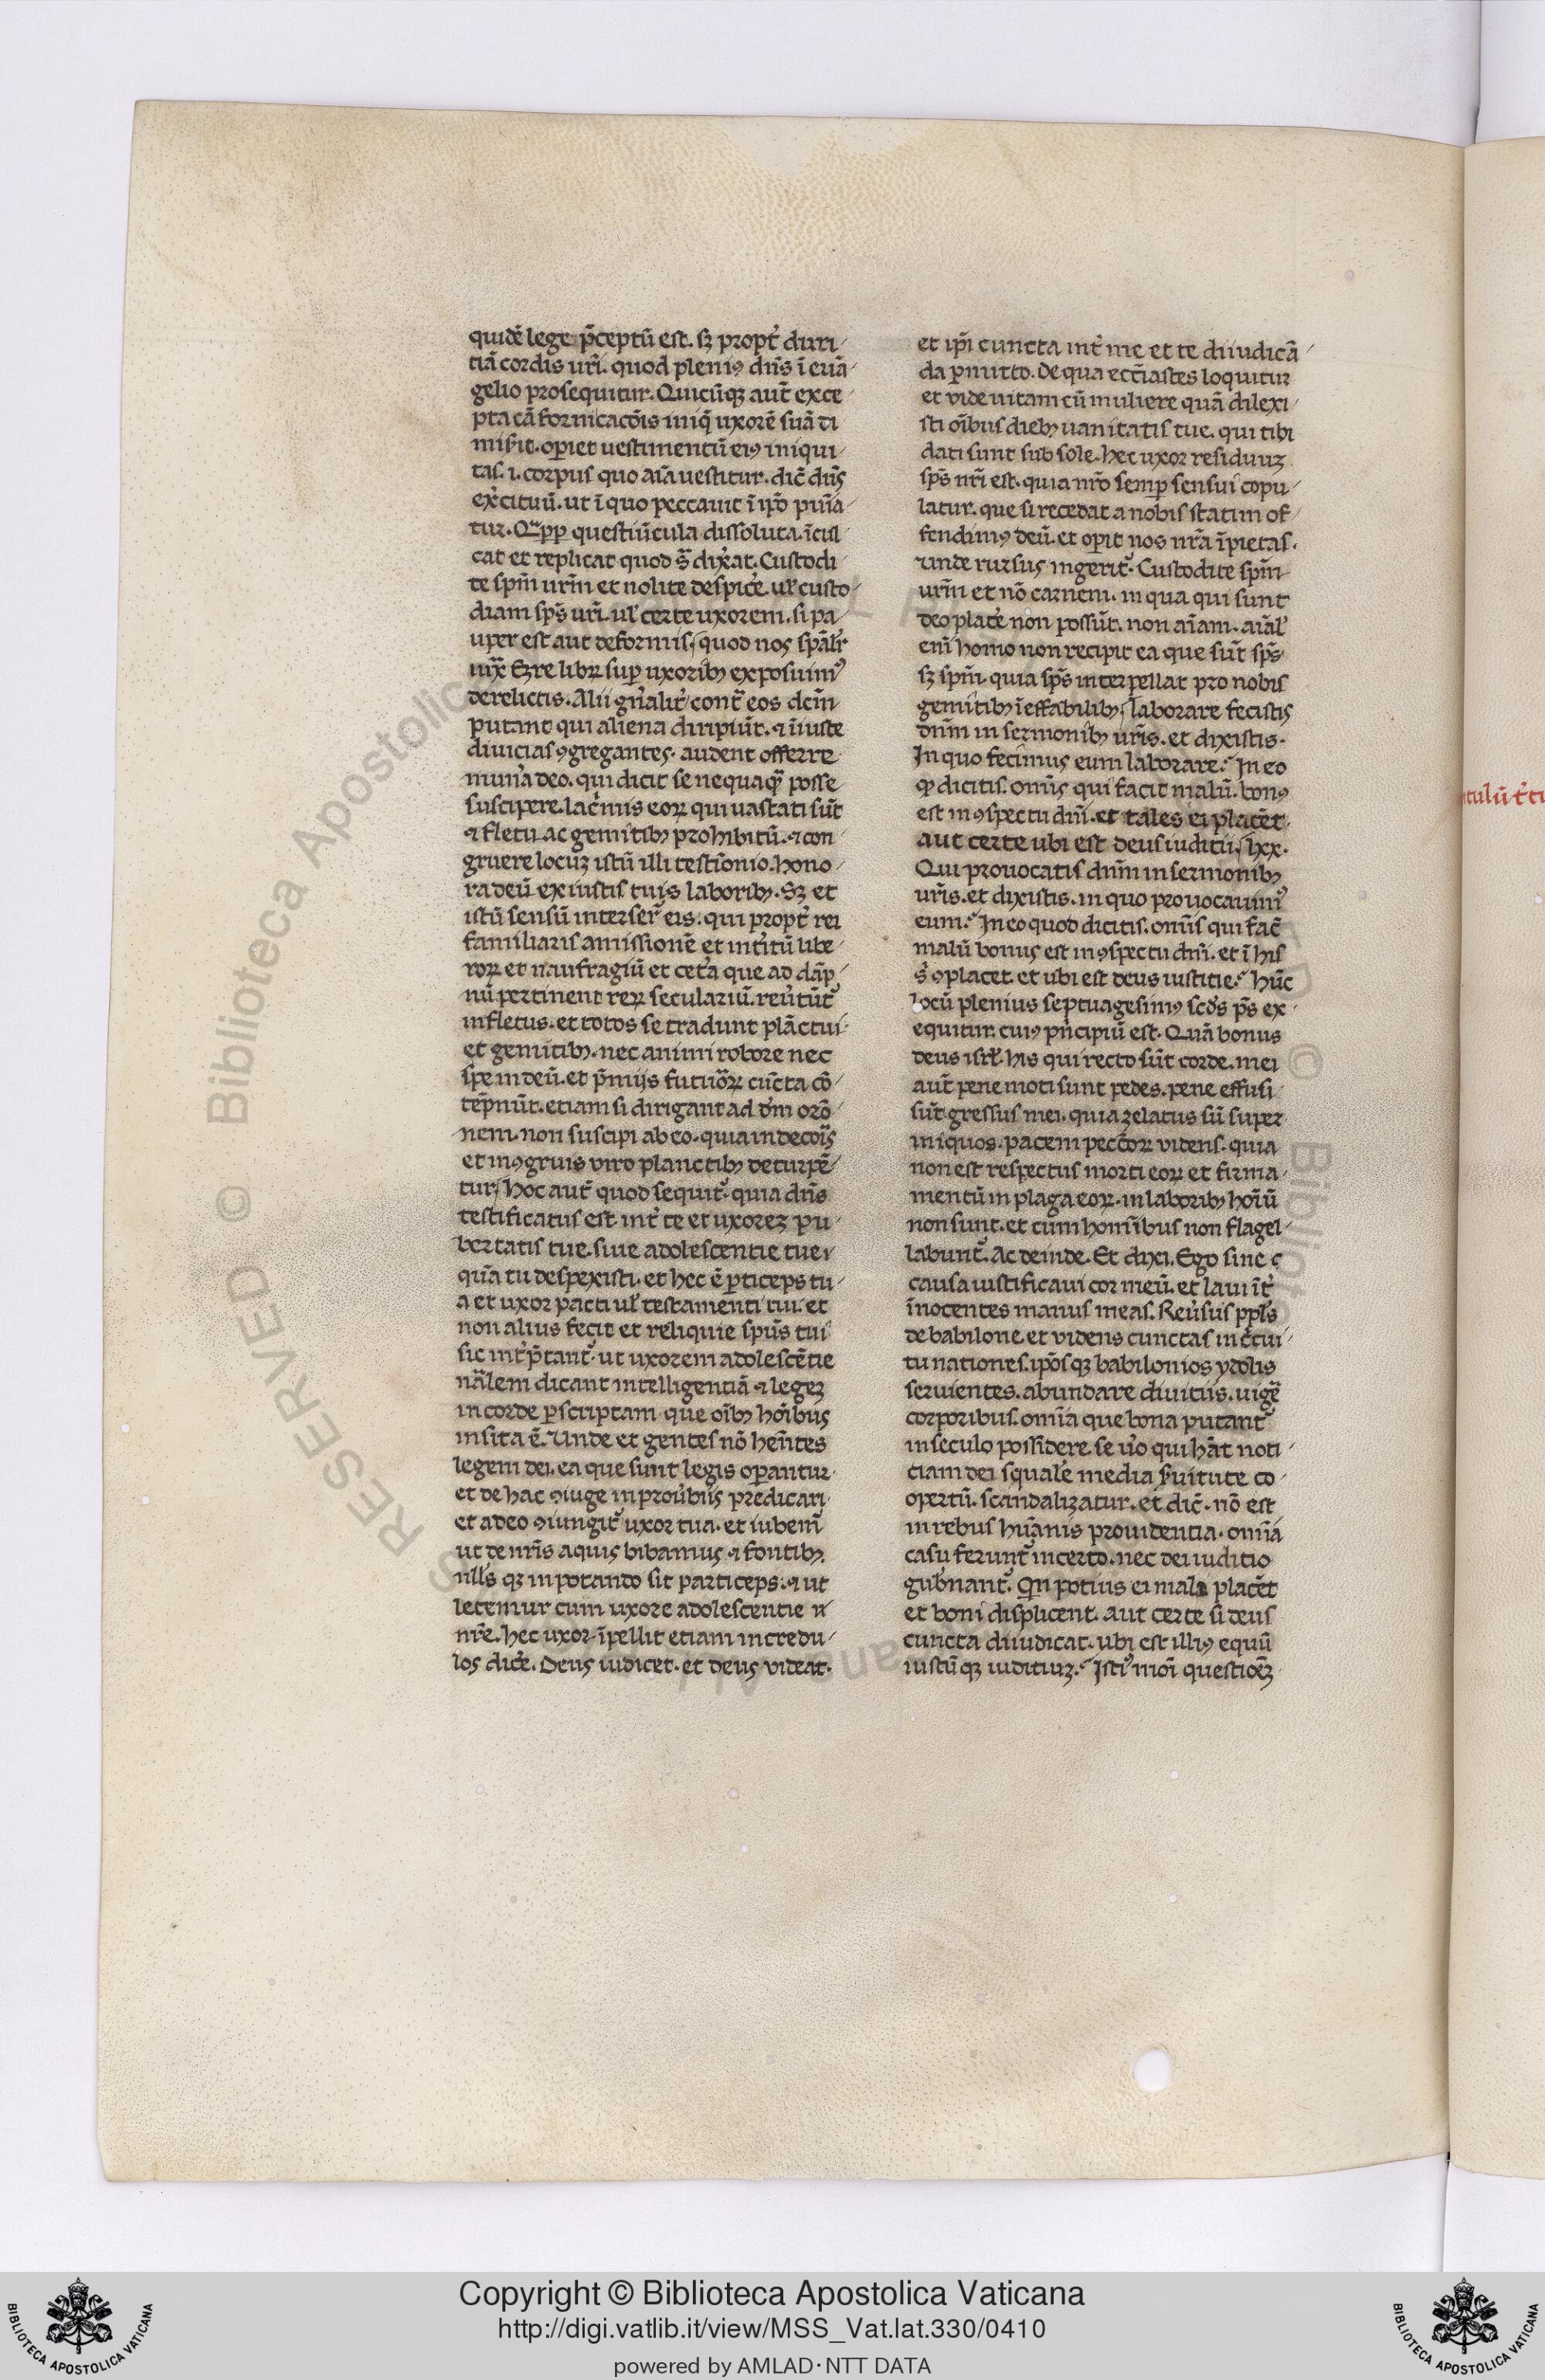 quidē lege p̄ceptū est. sꝫ propt̓ duri
tiā cordis ur̄i. quod pleniꝯ dn̄s ī euā
gelio prosequitur. Quicūqꝫ aut̄ exce
pta cā fornicacōis iniq̄ uxorē suā di
mis̓it. op̱iet uestimentū eiꝯ iniqui
tas. i. corpus quo aīa uestitur. dic̄ dn̄s
ex̓cituū. ut ī quo peccauit ī ip̄o puīa
tur. questiūcula dissoluta. īcul
cat et replicat quod s̄ dix̓at. Custodi
te sp̄m ur̄m et nolite despic̓e. ul̓ custo
diam sp̄s ur̄i. ul̓ certe uxorem. si pa
uper est aut deformis, quod nos sp̄alr̓
iux̄ Ezre libꝝ sup̱ uxoribꝫ exposuimꝰ
derelictis. Alii gn̄alit̓ cont̄ eos dcm̄
putant qui aliena diripiūt. ⁊ īiuste
diuicias ꝯgregantes. audent offerre
mun̓a deo. qui dicit se nequaq̄ posse
suscipere. lac̓mis eoꝝ qui uastati sūt
⁊ fletu ac gemitibꝫ prohibitū. ⁊ con
gruere locuꝫ istū illi testīonio. hono
ra deū ex iustis tuis laboribꝫ. Sꝫ et
istū sensū interser̄ eis: qui propt̓ rei
familiaris amissionē et int̓itū libe
roꝝ et naufragiū et cet̓a que ad dāp
nū pertinent reꝝ seculariū. reu̓tūtᷣ
in fletus. et totos se tradunt plāctui
et gemitibꝫ. nec animi robore nec
spe in deū. et p̄mijs futuroꝝ cūcta cō
tēpnūt. etiam si dirigant ad dm̄ orō
nem. non suscipi ab eo. quia indecoris
et inꝯgruis uiro planctibꝫ deturpē
tur, hoc aut̄ quod sequitᷣ. quia dn̄s
testificatus est int̓ te et uxoreꝫ pu
bertatis tue. siue adolescentie tue,
quā tu despexisti. et hec ē p̱ticeps tu
a et uxor pacti ul̓ testamenti tui. et
non alius fecit et reliquie spūs tui
sic int̓p̄tantᷣ. ut uxorem adolescētie
nālem dicant intelligentiā ⁊ legeꝫ
in corde p̱scriptam. que oībꝫ hoībus
insita ē. Unde et gentes nō hen̄tes
legem dei. ea que sunt legis op̱antur.
et de hac ꝯiuge in prou̓biis predicari
et a deo ꝯiungitᷣ uxor tua. et iubemᷣ
ut de nr̄is aquis bibamus ⁊ fontibꝫ.
nll̓s qꝫ in potando sit particeps. ⁊ ut
letemur cum uxore adolescentie n
nr̄e. hec uxor īpellit etiam incredu
los dic̓e. Deus iudicet. et deus uideat.
et ip̄i cuncta int̓ me et te diiudicā
da p̱mitto. De qua ecc̄iastes loquitur
et uide uitam cū muliere quā dilexi
sti oībus diebꝫ uanitatis tue. qui tibi
dati sunt sub sole. hec uxor residuuꝫ
sp̄s nr̄i est. quia nr̄o semp̱ sensui copu
latur. que si recedat a nobis statim of
fendimꝯ deū. et op̱it nos nr̄a īpietas.
unde rursus ingeritᷣ. Custodite sp̄m
ur̄m et nō carnem. in qua qui sunt
deo plac̓e non possūt. non aīam. aīal̓
enī homo non recipit ea que sūt sp̄s
sꝫ sp̄m. quia sp̄s interpellat pro nobis
gemitibꝫ īeffabilibꝫ, laborare fecistis
dn̄m in sermonibꝫ ur̄is. et dixistis.
In quo fecimus eum laborare. In eo
ꝙ dicitis. omīs qui facit malū. bonꝯ
est in ꝯspectu dn̄i. et tales ei placēt.
aut certe ubi est deus iuditii, lxx.
Qui prouocatis dn̄m in sermonibꝫ
ur̄is. et dixistis. in quo prouocauimꝰ
eum. In eo quod dicitis. omīs qui fac̄
malū bonus est in ꝯspectu dn̄i. et ī his
s̓ ꝯplacet. et ubi est deus iustitie. Hūc
locū plenius septuagesimꝯ scd̓s p̄s ex
equitur. cuiꝯ pn̄cipiū est. Quā bonus
deus isrl̓. his qui recto sūt corde. mei
aut̄ pene moti sunt pedes. pene effusi
sūt gressus mei. quia zelatus sū super
iniquos. pacem pecc̄oꝝ uidens. quia
non est respectus morti eoꝝ et firma
mentū in plaga eoꝝ. in laboribꝫ hoīū
non sunt. et cum hominibus non flagel
labuntᷣ. Ac deinde. Et dixi. Ego sine c
causa iustificaui cor meū. et laui īt̓
īnocentes manus meas. Reu̓sus ppl̓s
de babilone. et uidens cunctas in c̓cui
tu nationes. ip̄os qꝫ babilonios ydolis
seruientes. abundare diuitiis. uige
corporibus. omīa que bona putantᷣ
in seculo possidere. se u̓o qui hāt noti
ciam dei squal̓e media s̓uitute co
opertū. scandalizatur. et dic̄. nō est
in rebus hūanis prouidentia. omīa
casu feruntᷣ incerto. nec dei iuditio
gub̓nantᷣ. Qn potius ei mala placēt
et boni displicent. aut certe si deus
cuncta diiudicat. ubi est illiꝯ equū
iustū qꝫ iudituꝫ. Istiꝰmōi questiōeꝫ
Copyright © Biblioteca Apostolica Vaticana
http://digi.vatlib.it/view/MSS_Vat.lat.330/0410
powered by AMLAD·NTT DATA
BIBLIOTECA APOSTOLICA VATICANA
BIBLIOTECA APOSTOLICA VATICANA